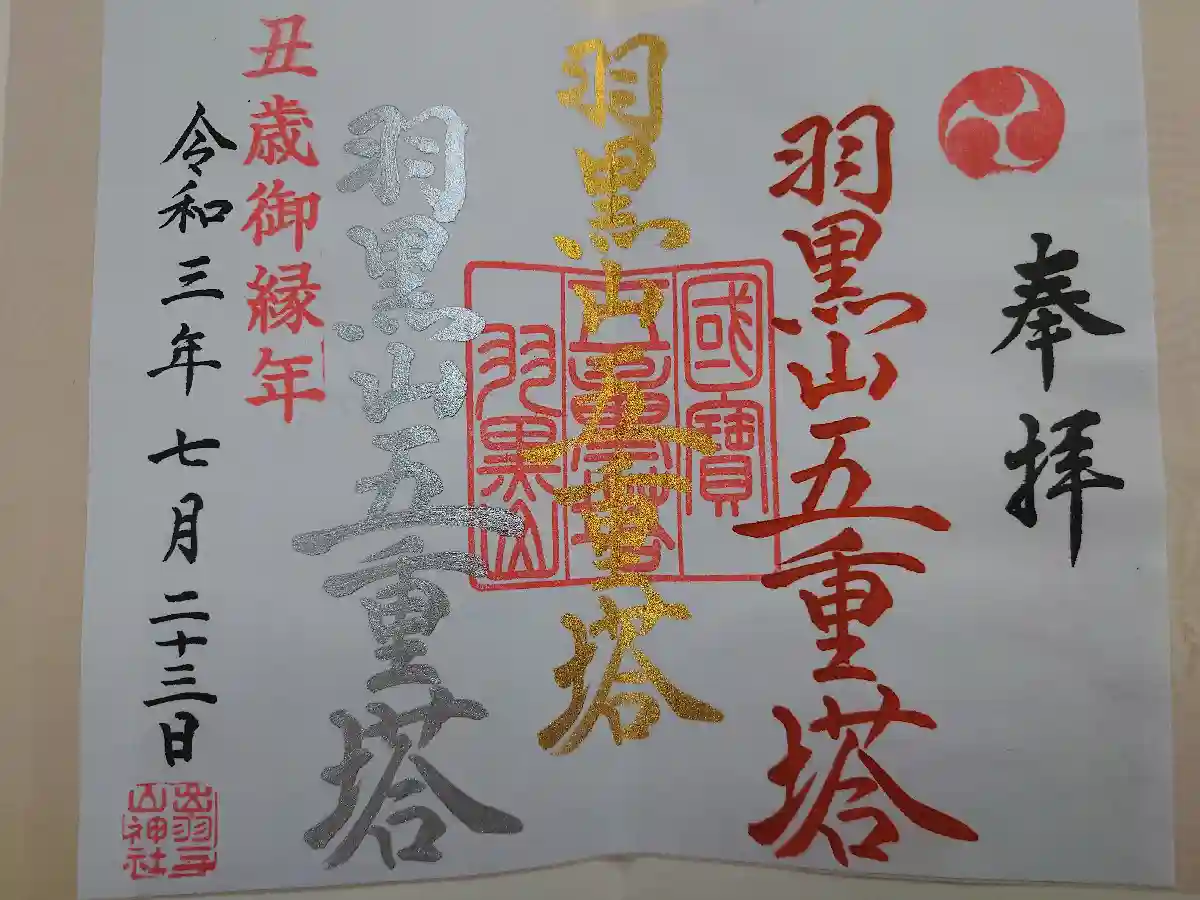 奉拝
羽黒山五重塔
國寶
五重塔
羽黒山
羽黒山五重塔
羽黒山五重塔
丑歳御縁年
令和三年七月二十三日
出羽三
山神社